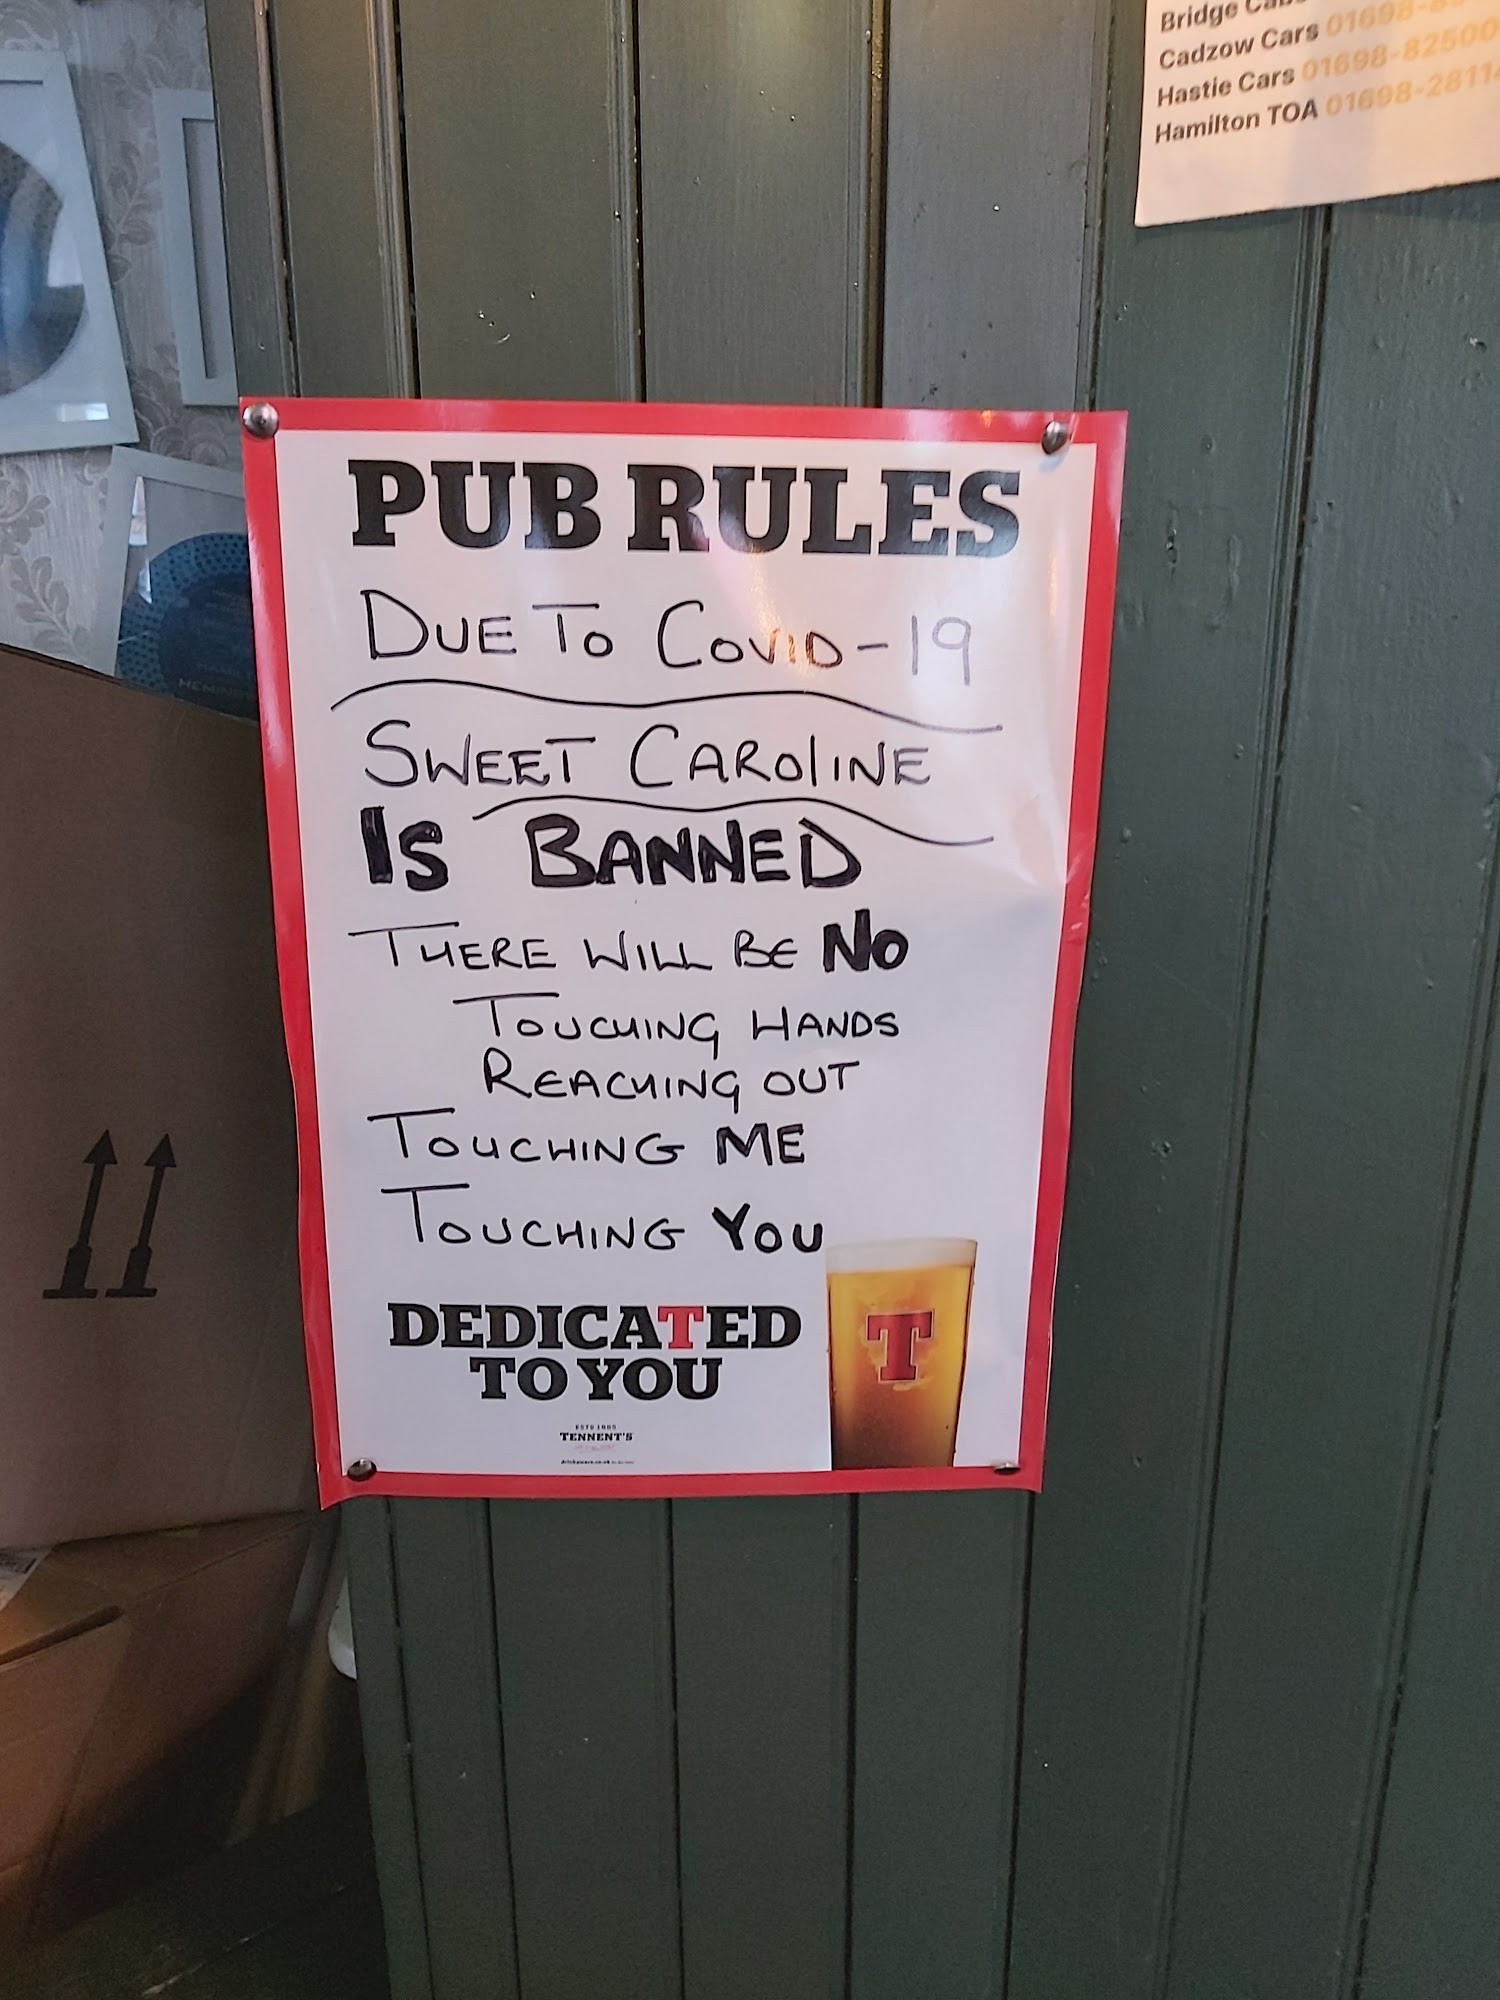 Bridge
Cadzow Cars 01698-
Hastie Cars 01698-82500
Hamilton TOA 01698-2811
PUB RULES
DUE TO COVID-19
SWEET CAROLINE
IS BANNED
THERE WILL BE NO
TOUCHING HANDS
REACHING OUT
TOUCHING ME
TOUCHING YOU
T
DEDICATED
TO YOU
ESTD 1885
TENNENT'S
drinkaware.co.uk